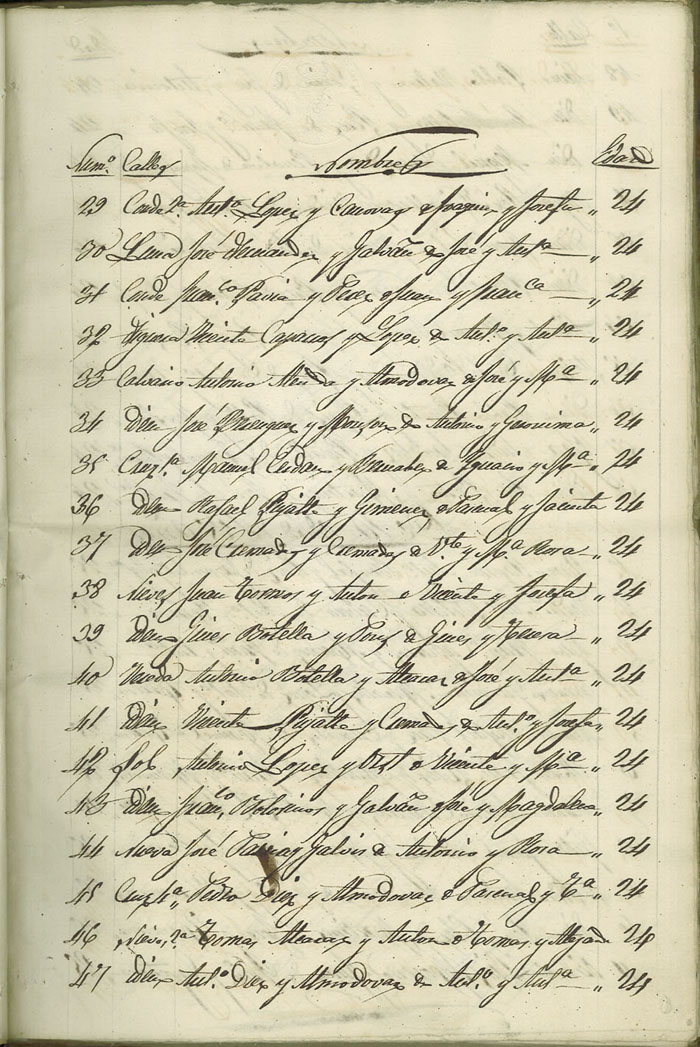 Num.º Calles Nombres Edad
29 Conde 2.ª Ant.ª Lopez y Canovas de Joaquin y Josefa „ 24
30 Luna José Hernandez y Galvañ de José y Ant.ª „ 24
31 Conde Fran.co Pavia y Perez de Juan y Fran.ca „ 24
32 Vicente Caparros y Lopez de Ant.º y Ant.ª „ 24
33 Calvario Antonio y Almodovar de José y M.ª „ 24
34 Idem José y de Antonio y Geronima „ 24
35 Cruz 1.ª Manuel Cerdan y Bernabeu de Ignacio y M.ª „ 24
36 Idem Rafael Pujalte y Gimenez de Pascual y Jacinta 24
37 Idem José Cremades y Cremades de V.te y M.ª Rosa „ 24
38 Nieves Juan Tormos y Anton de Vicente y Josefa „ 24
39 Idem Gines Botella y de Gines y Teresa „ 24
40 Vereda Antonio Botella y Alcaraz de José y Ant.ª „ 24
41 Idem Vicente Pujalte y Cremades de Ant.º y Josefa „ 24
42 Sol Antonio Lopez y de Vicente y M.ª „ 24
43 Idem Fran.co y Galvañ de José y Magdalena „ 24
44 Nueva José Galvis de Antonio y Rosa „ 24
45 Cruz 1.ª Pedro Diez y Almodovar de Pascual y T.ª „ 24
46 Nieves 2.ª Tomas Alcaraz y Anton de Tomas y 24
47 Idem Ant.º Diez y Almodovar de Ant.º y Ant.ª „ 24